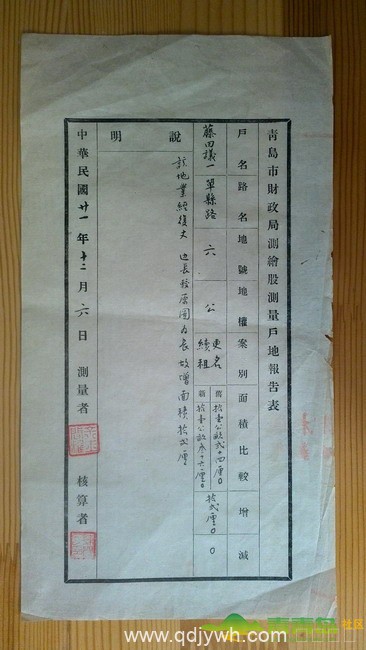 青島市財政局測繪股測量戶地報告表
戶名 路名 地號 地權 案別 面積比較 增 減
藤田議一 單縣路 六 公 更名續租
舊 拾壹公畝弍十四厘〇
新 拾壹公畝叁十六厘〇
拾弍厘〇 〇
說明
該地業經復丈 邊長較原圖為長 故增面積拾弍厘
中華民國廿一年十二月六日 測量者 核算者
青青岛社区
www.qdjywh.com